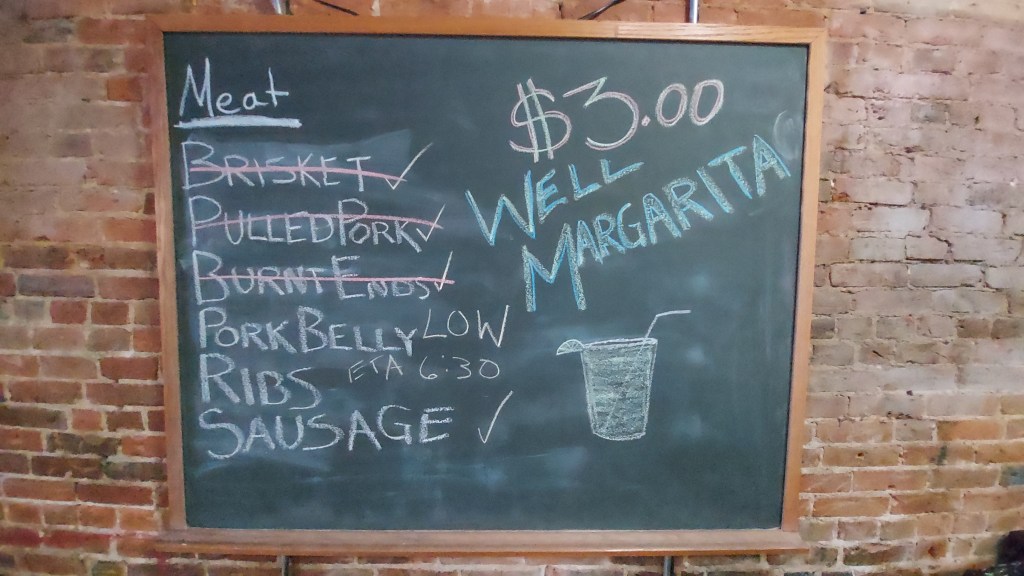 Meat
BRISKET ✓
PULLED PORK ✓
BURNT ENDS ✓
PORK BELLY LOW
RIBS ETA 6:30
SAUSAGE ✓
$3.00
WELL
MARGARITA